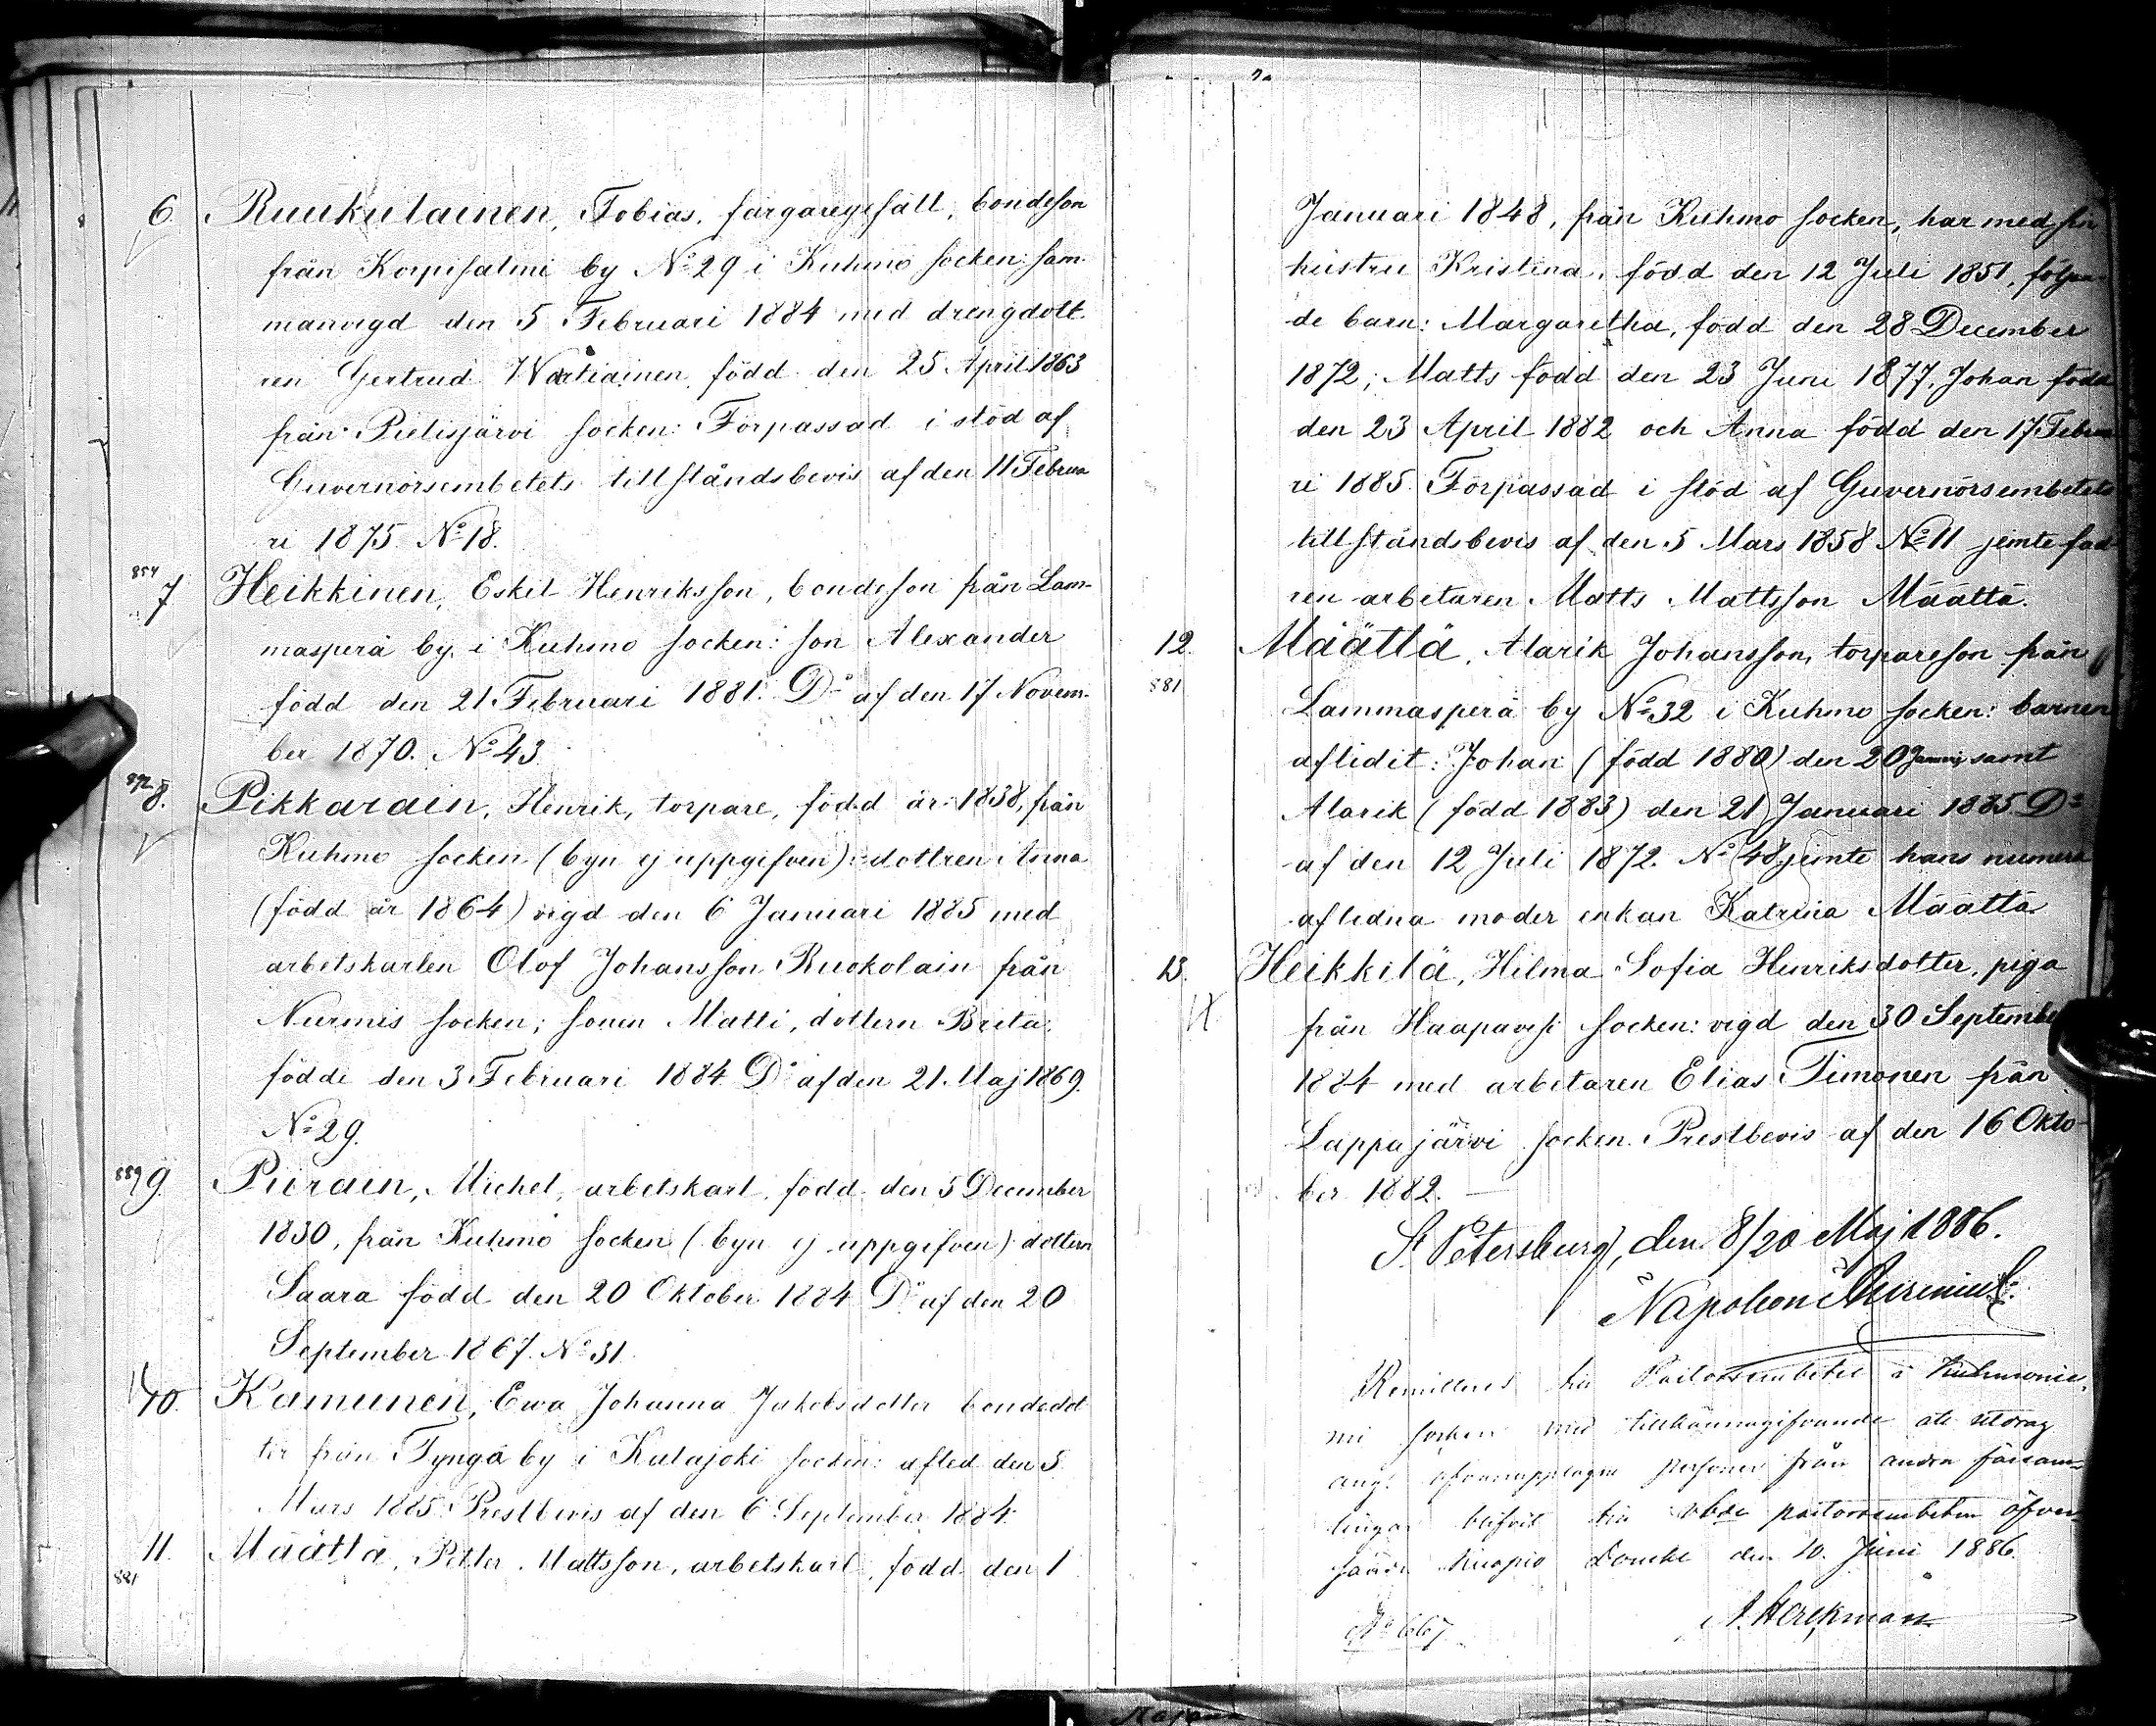 6. Ruukulainen, Tobias, färgaregesäll, bondeson
från Korpisalmi by No 29 i Kuhmo socken: sam-
manvigd den 5 Februari 1884 med drengdott-
ren Gertrud Wartiainen, född den 25 April 1863
från Pielisjärvi socken: Förpassad i stöd af
Guvernörsembetets tillståndsbevis af den 11 Februa
ri 1875 No 18.
854
7 Heikkinen, Eskil Henriksson, bondeson från Lam-
masperä by i Kuhmo socken: son Alexander
född den 21 Februari 1881. Do af den 17 Novem-
ber 1870. No 43
892
8. Pikkarain, Henrik, torpare, född år 1838, från
Kuhmo socken (byn ej uppgifven): dottren Anna
(född år 1864) vigd den 6 Januari 1885 med
arbetskarlen Olof Johansson Ruokolain från
Nurmis socken; sonen Matti, dottern Brita,
födde den 3 Februari 1884 Do af den 21 Maj 1869.
No 29.
889
9. Piirain, Michel, arbetskarl, född den 5 December
1830, från Kuhmo socken (byn ej uppgifven) dottern
Saara född den 20 Oktober 1884 Do af den 20
September 1867. No 31.
10. Kamunen, Ewa Johanna Jakobsdotter bondedot
ter från Tyngä by i Kalajoki socken: afled den 5
Mars 1885 Prestbevis af den 6 September 1884
11. Määttä, Petter Mattsson, arbetskarl, född den 1
881
Januari 1848, från Kuhmo socken, har med sin
hustru Kristina, född den 12 Juli 1851, följan
de barn: Margaretha, född den 28 December
1872; Matts född den 23 Juni 1877, Johan född
den 23 April 1882 och Anna född den 17 Febru
ri 1885. Förpassad i stöd af Guvernörsembetets
tillståndsbevis af den 5 Mars 1858 No 11 jemte fad
ren arbetaren Matts Mattsson Määttä.
12. Määttä, Alarik Johansson, torpareson från
881
Lammasperä by No 32 i Kuhmo socken: barnen
aflidit: Johan (född 1880) den 20 Januarij samt
Alarik (född 1883) den 21 Januari 1885. Do
af den 12 Juli 1872. No 48 jemte hans numera
aflidna moder enkan Katrina Määttä
13. Heikkilä, Hilma Sofia Henriksdotter, piga
från Haapavesi socken: vigd den 30 Septembe
1884 med arbetaren Elias Timonen från
Lappajärvi socken. Prestbevis af den 16 Okto-
ber 1882.
St Petersburg, den 8/20 Maj 1886.
Napoleon
Remitteras till Pastorsembetet i Kuhmonie-
mi socken med tillkännagifvande att utdrag
ang. ofvanupptagna personer från andra försam-
lingar blifvit till vbde pastorsembeten öfver
sände Kuopio Domkl den 10. Juni 1886.
No 667. A. Herckman